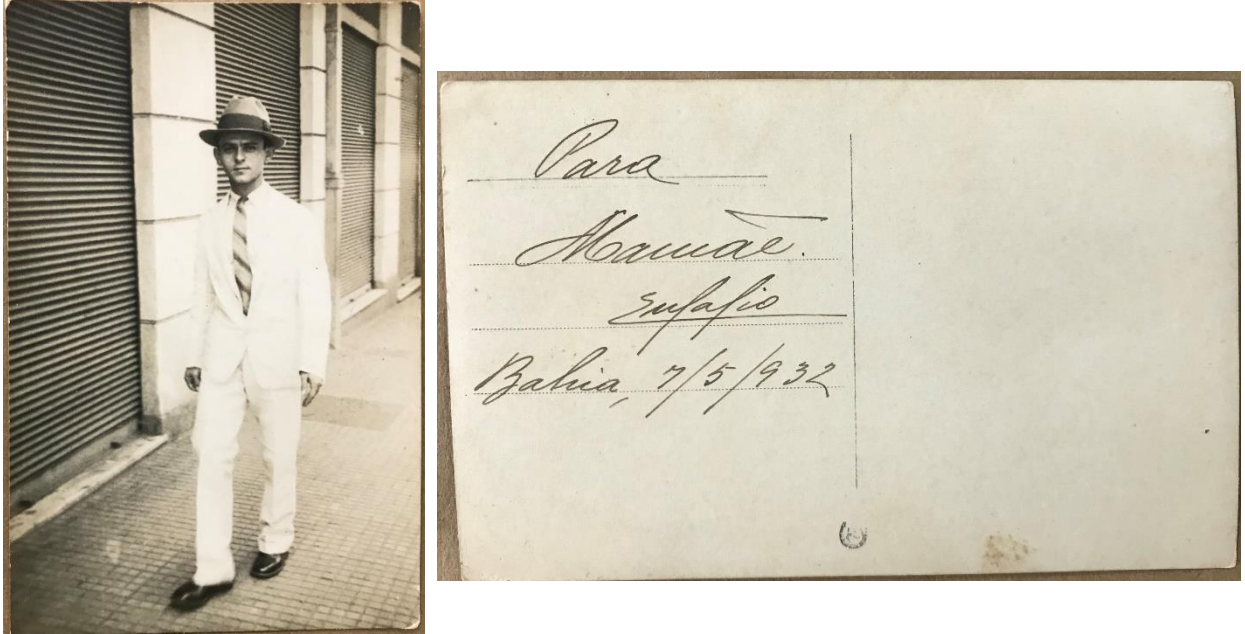 Para
Mamãe.
Eufafio
Bahia, 7/5/932